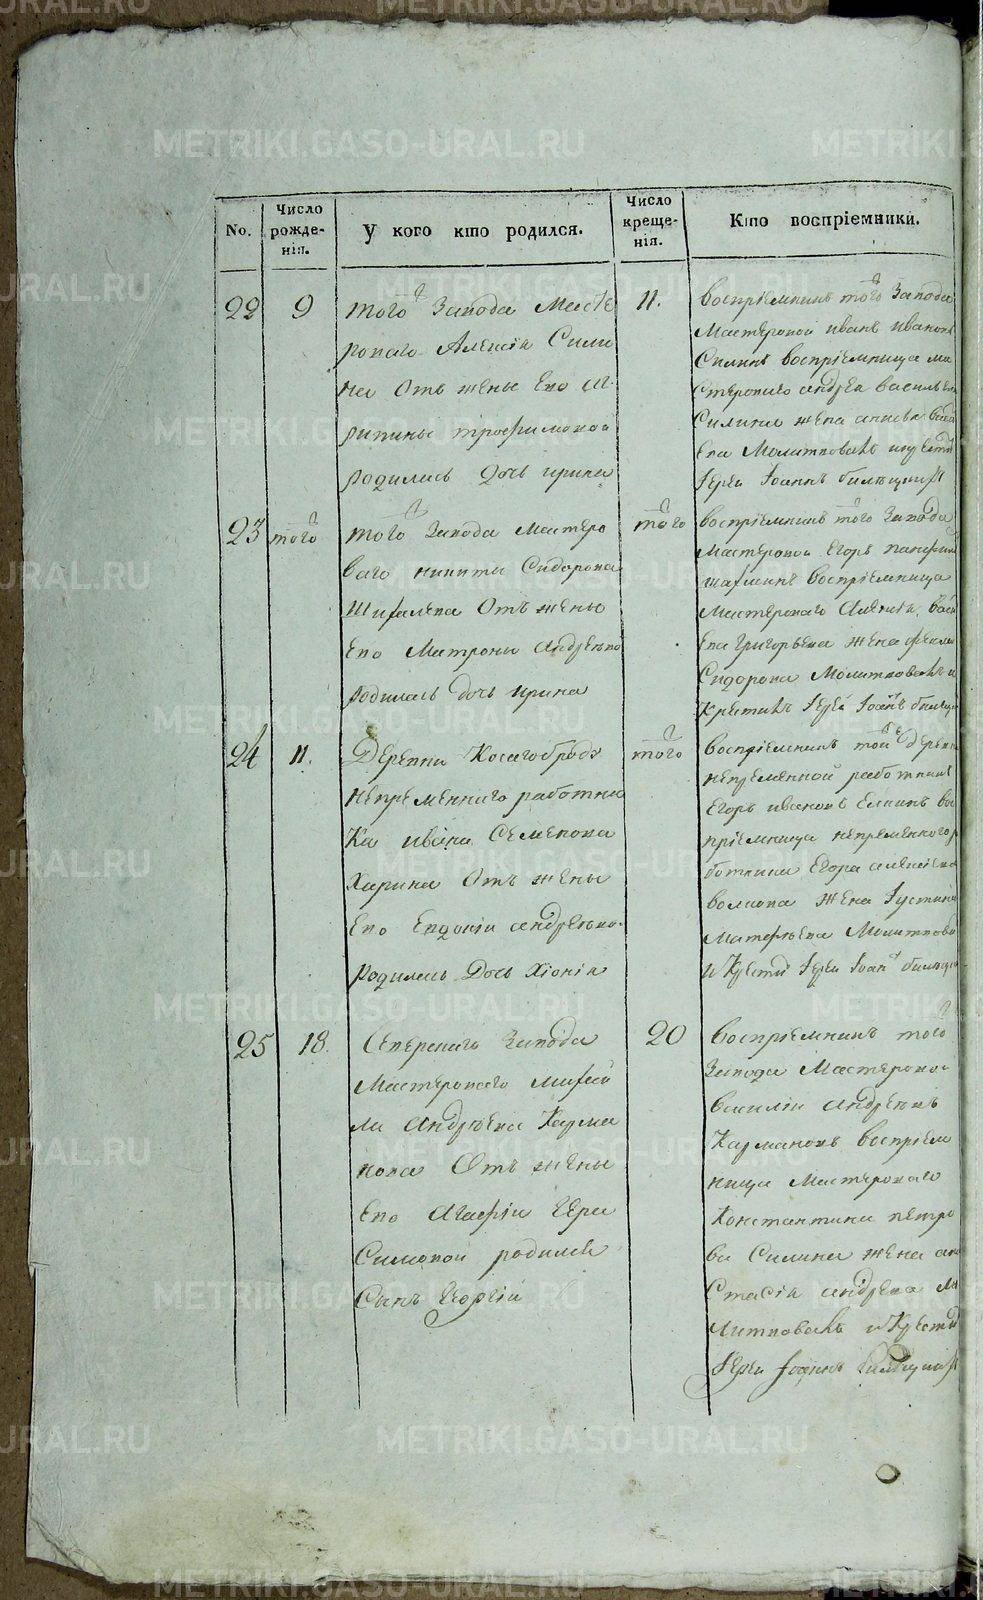 No.
Число рожде-нія.
У кого кто родился.
Число креще-нія.
Кто воспріемники.
22
9
того Завода Масте
роваго Алексія Сили
на Отъ жены Его Аг
рипины трофимовой
родилась Дочь ирина
11.
Воспріемникъ того Завода
Мастеровой иванъ ивановъ
Силинъ воспріемница ма
стероваго андрея васильева
Силина жена
Іерей Іоаннъ
23
того
того Завода Мастеро
ваго никиты Сидорова
Отъ жены
Его Матроны Андреевой
родилась Дочь ирина
того
Воспріемникъ того Завода
Мастеровой Егоръ
воспріемница
Мастероваго Алексія
Григорьева жена
Сидорова Молитвовалъ и
Крестилъ Іерей Іоанъ
24
11.
Деревни Косогоброду
непременнаго работни
ка ивана Семенова
Харина Отъ жены
Его Евдокіи андреевой
родилась Дочь Хіонія
того
воспріемникъ той деревни
непременной работникъ
Егоръ ивановъ Елкинъ вос
пріемница непременного р
ботника Егора алексеева
Волкова жена Іустинія
Матфеева Молитвовалъ
и Крести Іерей Іоанъ
25
18.
Северскаго Завода
Мастероваго
ла Андреева Карма
нова Отъ жены
Его Агафіи Гера
Симовой родился
Сынъ Георгій
20
Воспріемникъ того
Завода Мастеровой
василіи андреевъ
Кармановъ воспріем
ница Мастероваго
Константина петро
ва Силина жена ана
стасія андреева Мо
литвовалъ и Крести
Іерей Іоаннъ
METRIKI.GASO-URAL.RU